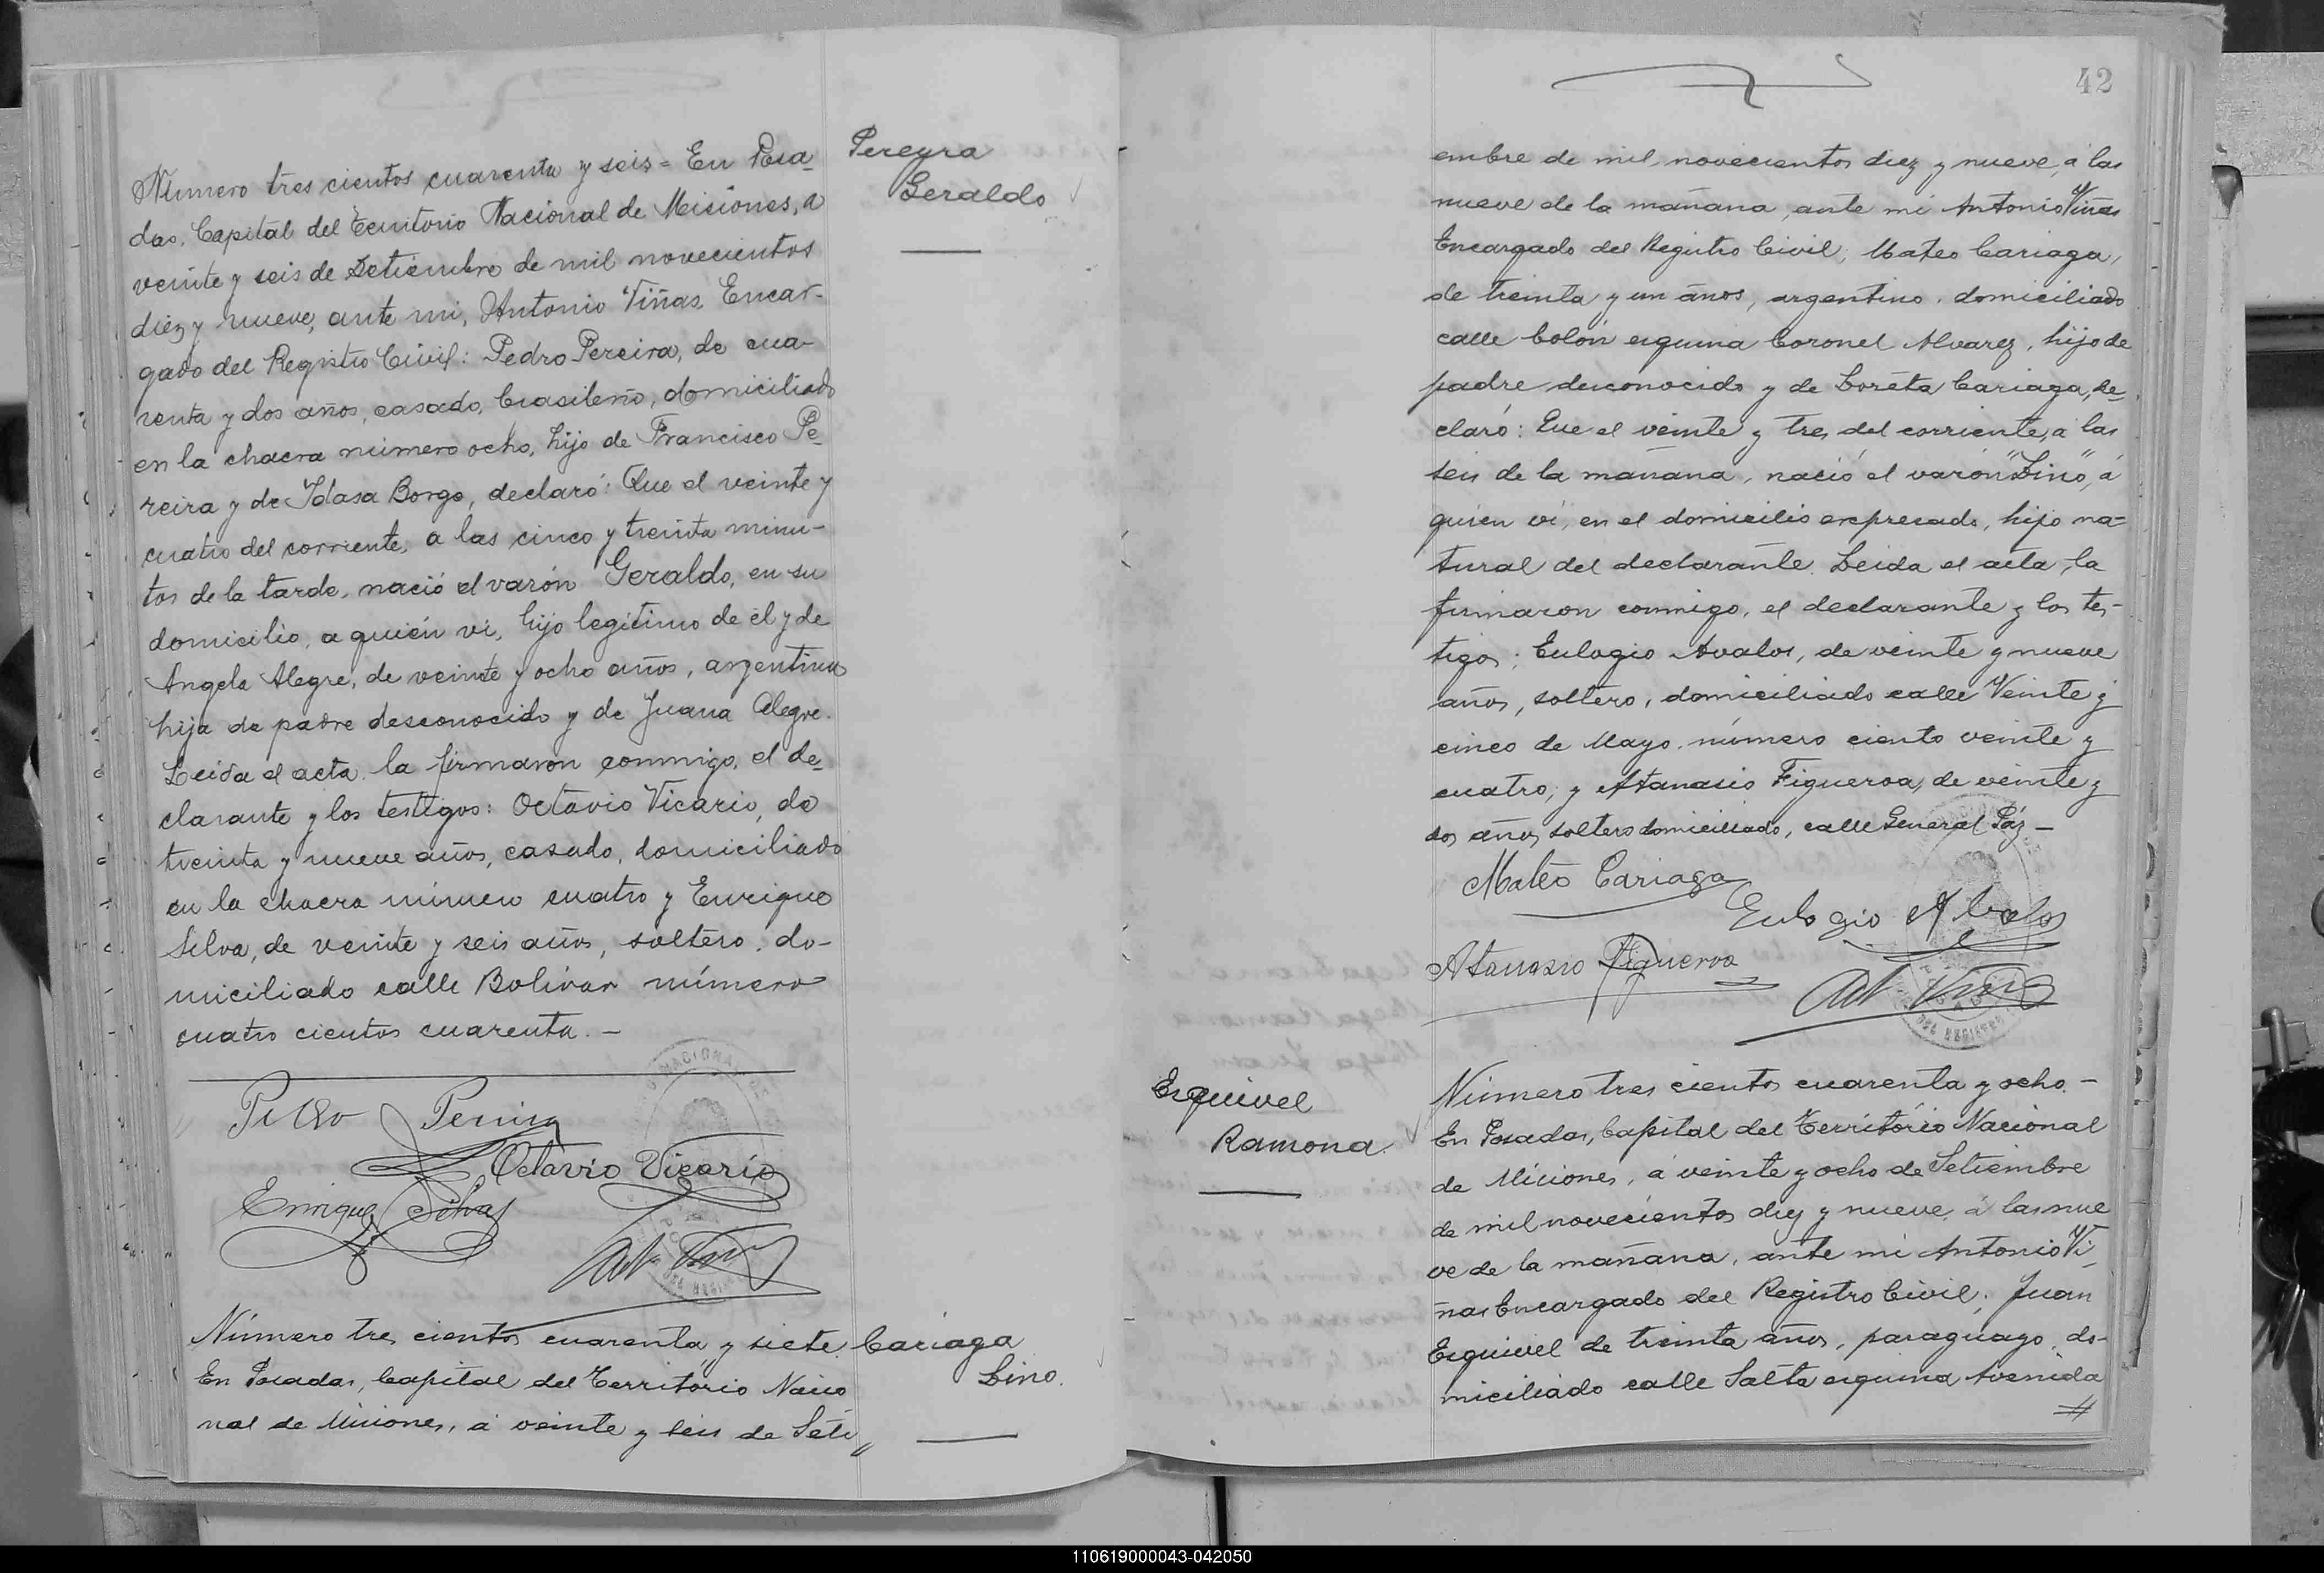 Número tres cientos cuarenta y seis = En Posa_
das, Capital del Territorio Nacional de Misiones, a
veinte y seis de Setiembre de mil novecientos
diez y nueve, ante mi, Antonio Viñas Encar-
gado del Registro Civil: Pedro Pereira, de cua-
renta y dos años, casado, brasileño, domiciliado
en la chacra número ocho, hijo de Francisco Pe_
reira y de Idasa Borgo, declaró: Que el veinte y
cuatro del corriente, a las cinco y treinta minu-
tos de la tarde, nació el varón Geraldo, en su
domicilio, a quién vi, hijo legítimo de él y de
Angela Alegre, de veinte y ocho años, argentina
hija de padre desconocido y de Juana Alegre.
Leida el acta la firmaron conmigo, el de_
clarante y los testigos: Octavio Vicario, de
treinta y nueve años, casado, domiciliado
en la chacra número cuatro y Enrique
Silva, de veinte y seis años, soltero, do-
miciliado calle Bolívar número
cuatro cientos cuarenta. —
Pereyra
Geraldo
Octavio Vicario
Enrique Silva
Número tres cientos cuarenta y siete.
En Posadas, Capital del Território Nacio
nal de Misiones, á veinte y seis de Seti"
Cariaga
Lino.
42
embre de mil novecientos diez y nueve, á las
nueve de la mañana, ante mi Antonio Viñas
Encargado del Registro Civil; Mateo Cariaga,
de treinta y un años, argentino, domiciliado
calle Colón esquina Coronel Alvarez, hijo de
padre desconocido y de Loreta Cariaga, de_
claró: Que el veinte y tres del corriente, á las
seis de la mañana, nació el varón "Lino", á
quien vi, en el domicilio expresado, hijo na=
tural del declarante. Leida el acta, la
firmaron conmigo, el declarante y los tes-
tigos; Eulogio Avalos, de veinte y nueve
años, soltero, domiciliado calle Veinte y
cinco de Mayo número ciento veinte y
cuatro; y Atanasio Figueroa, de veinte y
dos años, soltero domiciliado, calle General Páz —
Mateo Cariaga
Eulogio Abalos
Atanasio Figueroa
Esquivel
Ramona.
Número tres cientos cuarenta y ocho. —
En Posadas, Capital del Território Nacional
de Misiones, á veinte y ocho de Setiembre
de mil novecientos diez y nueve, á las nue
ve de la mañana, ante mi Antonio Vi_
ñas Encargado del Registro Civil; Juan
Esquivel de treinta años, paraguayo, do-
miciliado calle Salta esquina Avenida
110619000043-042050